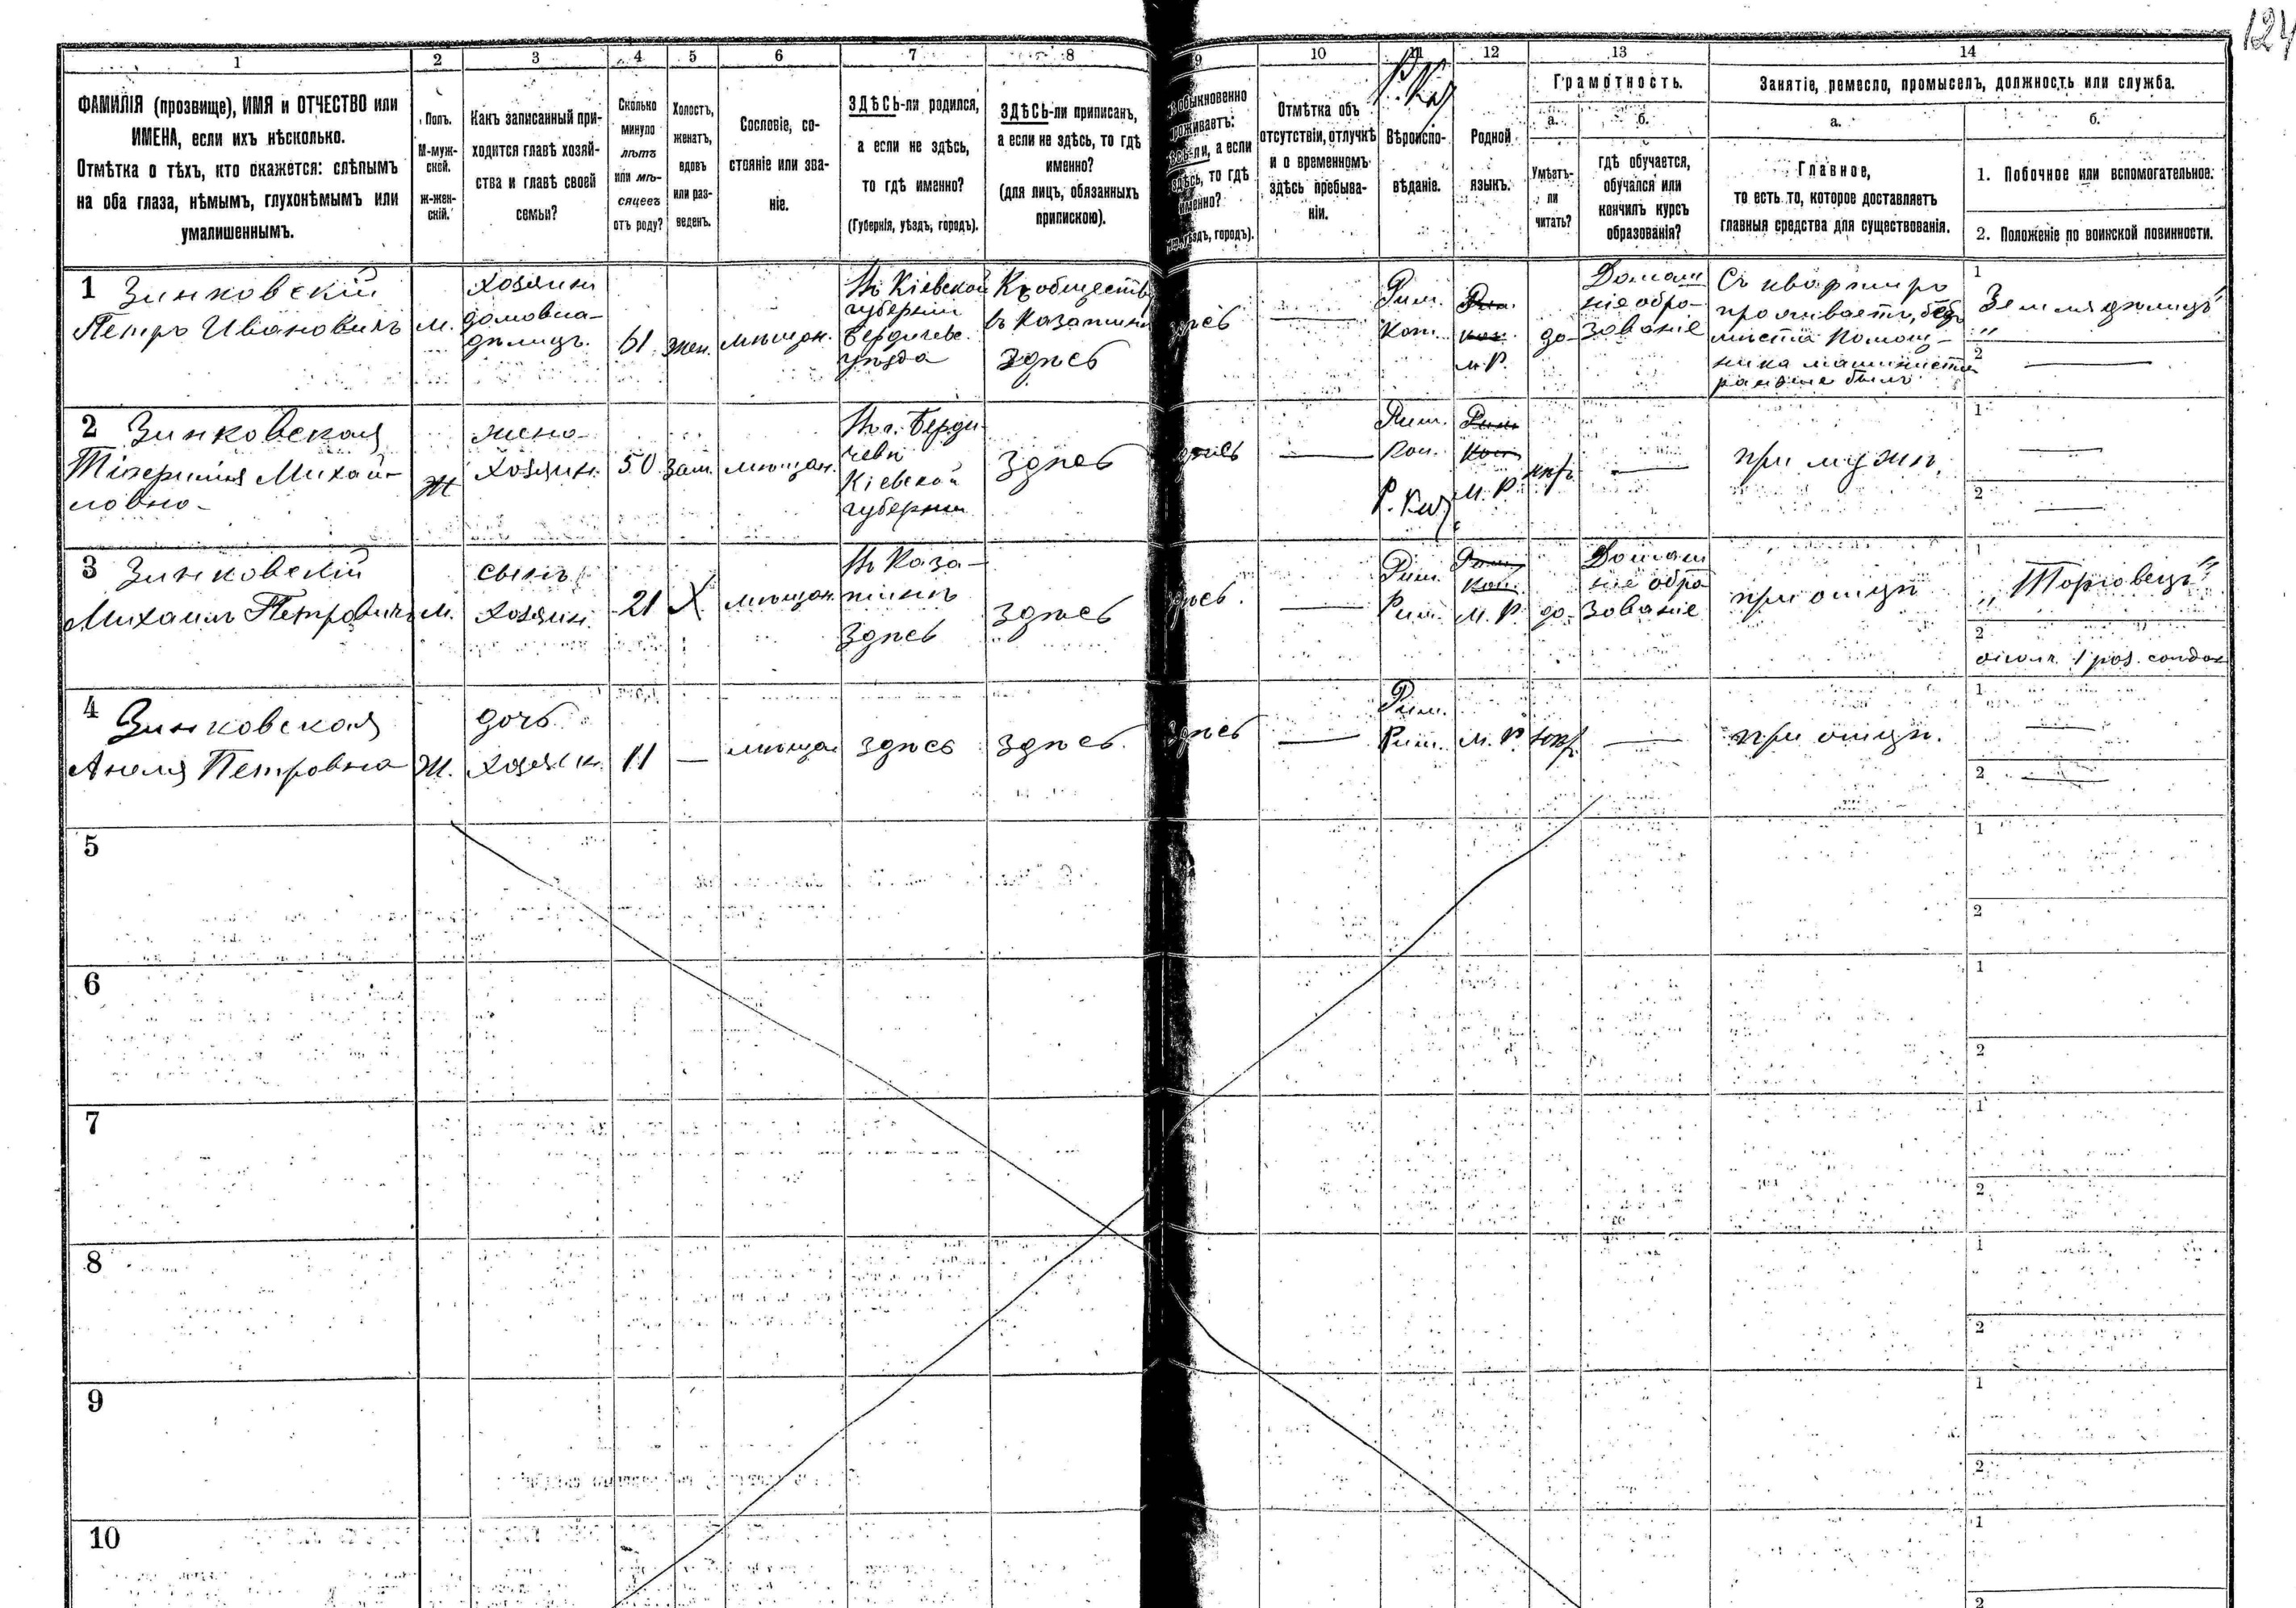 124
1 2 3 4 5 6 7 8 9 10 11 12 13 14
ФАМИЛІЯ (прозвище), ИМЯ и ОТЧЕСТВО или
ИМЕНА, если ихъ нѣсколько.
Отмѣтка о тѣхъ, кто окажется: слѣпымъ
на оба глаза, нѣмымъ, глухонѣмымъ или
умалишеннымъ.
Полъ.
М-муж-
ской.
ж-жен-
скій.
Какъ записанный при-
ходится главѣ хозяй-
ства и главѣ своей
семьи?
Сколько
минуло
лѣтъ
или мѣ-
сяцевъ
отъ роду?
Холостъ,
женатъ,
вдовъ
или раз-
веденъ.
Сословіе, со-
стояніе или зва-
ніе.
ЗДѢСЬ-ли родился,
а если не здѣсь,
то гдѣ именно?
(Губернія, уѣздъ, городъ).
ЗДѢСЬ-ли приписанъ,
а если не здѣсь, то гдѣ
именно?
(для лицъ, обязанныхъ
припискою).
обыкновенно
проживаетъ:
а если
здѣсь, то гдѣ
именно?
уѣздъ, городъ).
Отмѣтка объ
отсутствіи, отлучкѣ
и о временномъ
здѣсь пребыва-
ніи.
Р. Ка
Вѣроиспо-
вѣданіе.
Родной
языкъ.
Грамотность.
а.
Умѣетъ-
ли
читать?
б.
гдѣ обучается,
обучался или
кончилъ курсъ
образованія?
Занятіе, ремесло, промыселъ, должность или служба.
а.
Главное,
то есть то, которое доставляетъ
главныя средства для существованія.
б.
1. Побочное или вспомогательное.
2. Положеніе по воинской повинности.
1 Зинковскій
Петръ Ивановичъ
м.
хозяинъ
домовла-
дѣлецъ.
61
жен.
мѣщан.
Въ Кіевской
губерніи
Бердичев.
уѣзда
Къ обществу
въ Казатинѣ
здѣсь
здѣсь
Рим.
Кат.
м. Р.
да
Домаш
ніе обра-
зованіе
Съ квартиръ
проживаетъ, безъ
мѣста Помощ-
ника машиниста
раньше былъ
1
Землядѣлецъ
2
2 Зинковская
Михай-
ловна
Ж
жена
хозяин.
50
Зам.
мѣщан.
Въ г. Берди
чевѣ
Кіевской
губерніи
Здѣсь
здѣсь
Рим.
Кат.
Р. Ка
М. Р.
нѣтъ
при мужѣ.
1
2
3 Зинковскій
Михаилъ Петровичъ
М.
сынъ
хозяин.
21
Х
мѣщан.
Въ Каза-
тинѣ
Здѣсь
Здѣсь
здѣсь.
Рим.
Рим.
М. Р.
да
Домаш
ніе обра
зованіе
при отцѣ
1
„Торговецъ"
2
4 Зинковская
Петровна
Ж.
дочь
хозяин.
11
мѣщан
здѣсь
здѣсь.
здѣсь
Рим.
Рим.
М. Р.
при отцѣ.
1
2
5
1
2
6
1
2
7
1
2
8
1
2
9
1
2
10
1
2